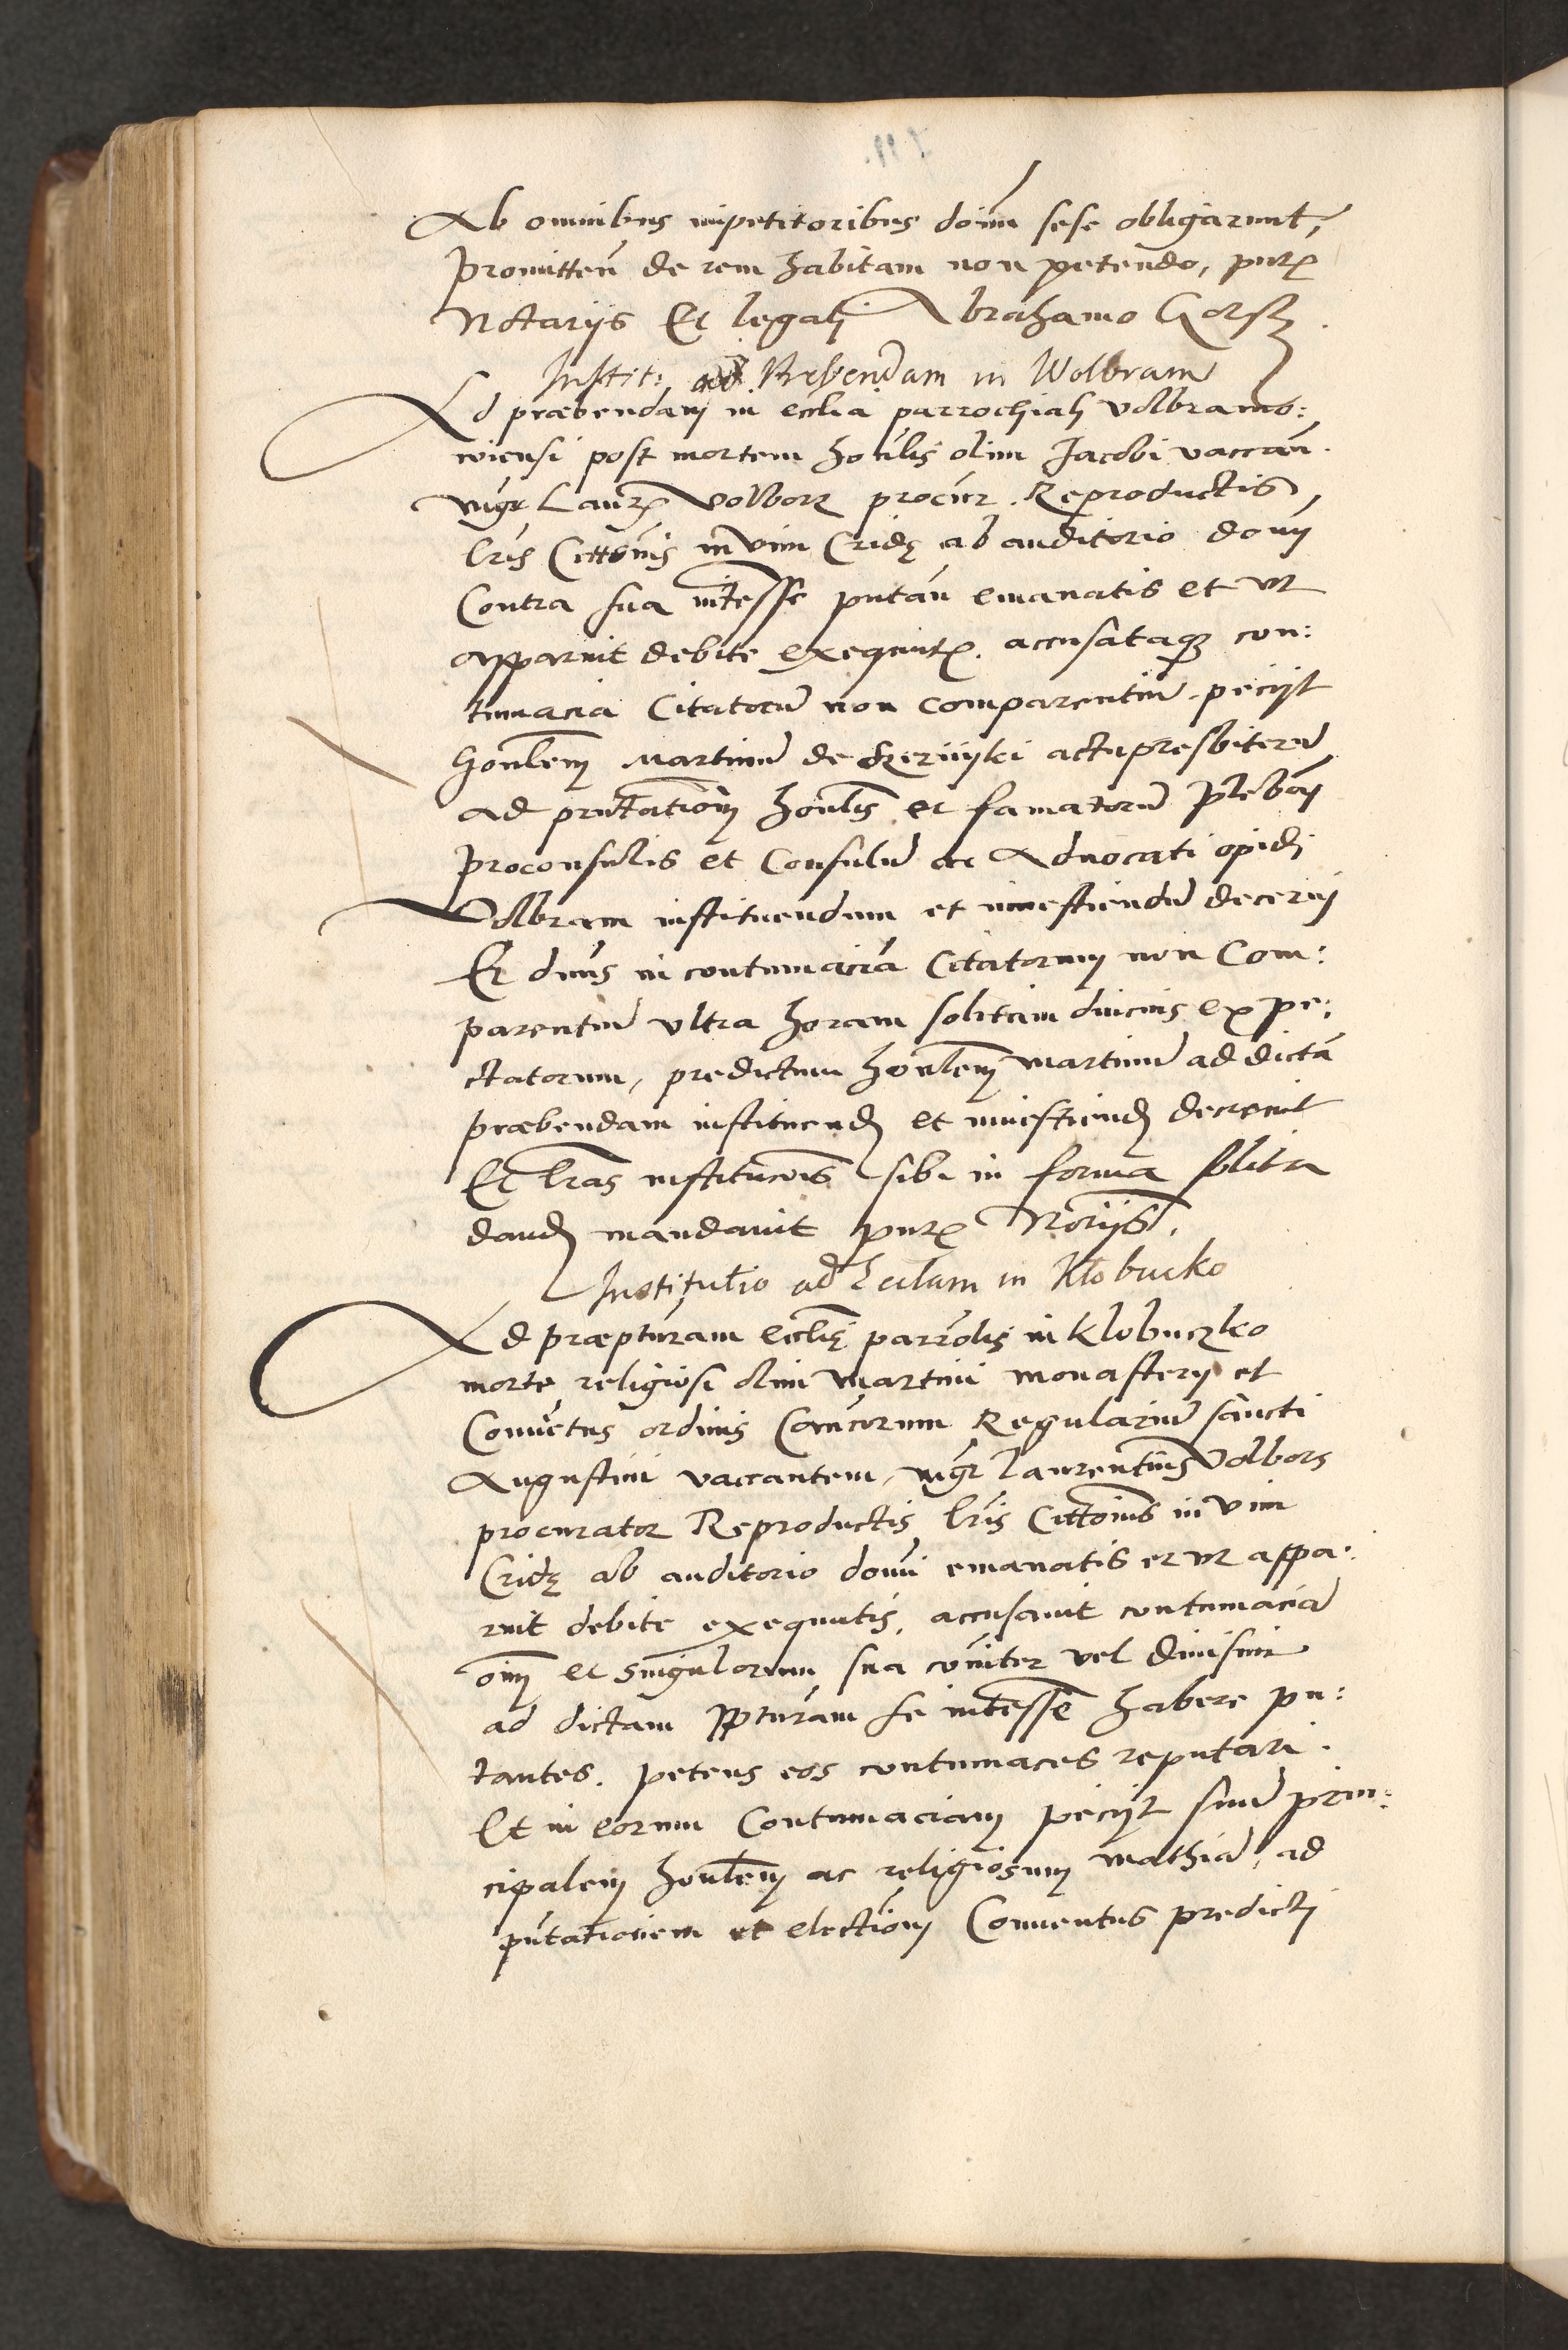 Ab omnibus impetitoribus doīm sese obligarunt,
Promitteń de rem habitam non petendo, pntꝭ
Notarijs Et legali Abrahamo Gorsz.
Instit: ad Prebendam in Wolbram
Ad præbendam in ecclia parrochiali Volbramo:
wiensi post mortem honlis olim Jacobi vaccań.
mgr Laurꝭ Volborz procur. Reproductis
lris Cittonis in vim Cridę ab auditorio dom̄
Contra sua intesse putań emanatis et vt
apparuit debite exequutꝭ. accusataqꝫ con:
tumacia Citatorū non comparentiū. pecijt
honlem Martinū de actu presbiterū
ad pntationem honlis et famatorū Plebani
proconsulis et Consulū ac Aduocati opidi
Volbram instituendum et inuestiendū decerni
Et dnus in contumaciā Citatorum non Com:
parentiū vltra horam solitam diucius expe:
ctatorum, predictum honlem Martinū ad dictā
præbendam instituend et inuestiend decreuit
Et lras institucois sibi in forma solita
dand mandauit pntꝭ Norijs.
Institutio ad Ecclam in Kłobucko
Ad præpturam ecclię parrolis in Klobuczko
morte religiosi olim Martini monasterij et
Conuetus ordinis Canicorum Regulariū sancti
Augustini vaccantem, mgr Laurentius Volbors
procurator Reproductis lris Cittonis in vim
Cridę ab auditorio domi emanatis et vt appa:
ruit debite exequutis, accusauit contumaciā
oīm et singulorum sua coniter vel diuisim
ad dictam ppturam se intesse habere pu:
tantes. petens eos contumaces reputari.
Et in eorum Contumaciam pecijt suū prin:
cipalem honlem ac religiosum Mathiā, ad
pntationem et electionem Conuentus predicti